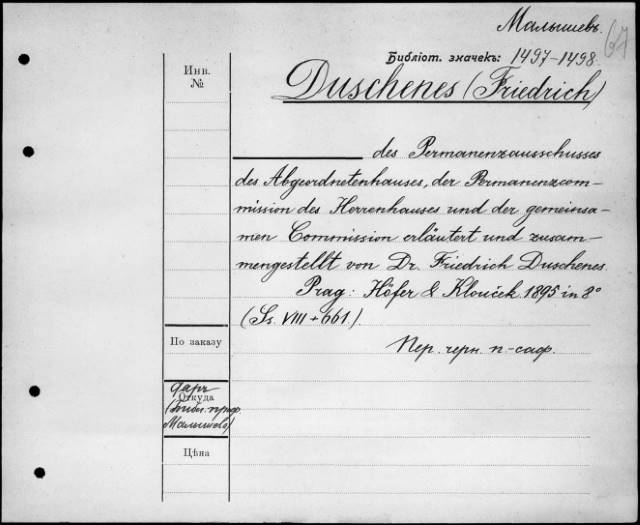 Малышевъ.
67
Библіот. значекъ: 1497-1498.
Инв.
№
Duschenes (Friedrich)
des Permanenzausschusses
des Abgeordnetenhauses, der Permanenzcom-
mission des Herrenhauses und der gemeinsa-
men Commission erläutert und zusam-
mengestellt von Dr. Friedrich Duschenes.
Prag: Höfer & Klouček. 1895 in 8°
(Ss. VIII + 661.).
По заказу
Пер. черн. п-саф.
даръ
Откуда
(Библ. проф.
Малышева)
Цѣна